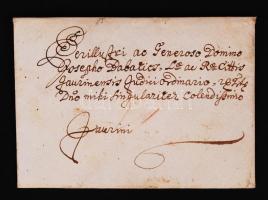 Perillustri ac Generoso Domino
Josepho Babatics, ac
Jaurinensis Ordinario
Dno mihi Singulariter Colendissimo
Jaurini